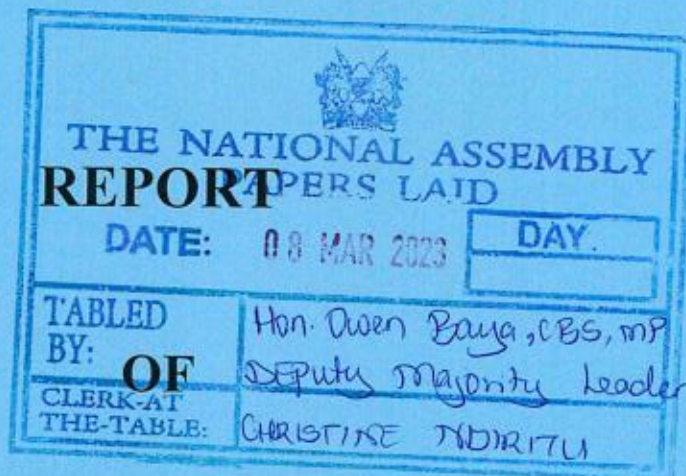 THE NATIONAL ASSEMBLY
REPORT
PAPERS LAID
DATE: 08 MAR 2023
DAY.
TABLED BY:
Hon. Owen Baya, CBS, MP
Deputy Majority Leader
OF
CLERK-AT THE-TABLE:
CHRISTINE NDIRITU